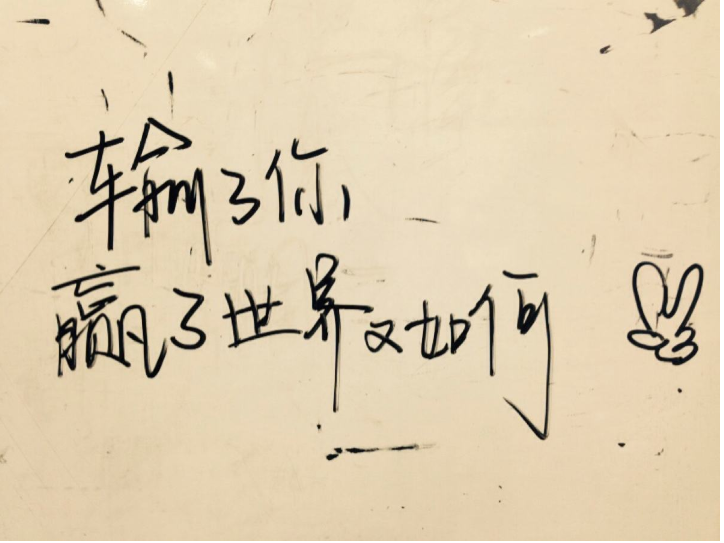 输了你,
赢了世界又如何